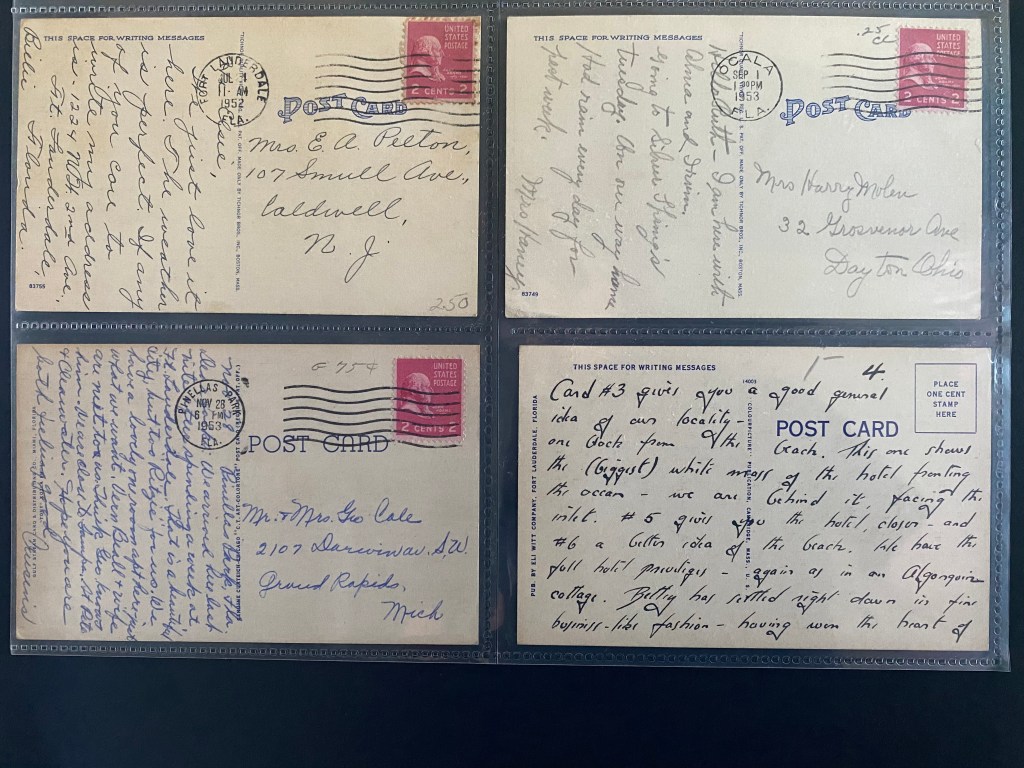 THIS SPACE FOR WRITING MESSAGES
LAUDERDALE
11 - AM
1952
FLA.
UNITED
STATES
POSTAGE
2 CENTS 2
POST CARD
Elsie,
I just love it
here. The weather
is perfect. If any
of you care to
write my address
is. 1224 N.W. 2nd Ave.
Ft. Lauderdale,
Florida.
Belle
Mrs. E. A. Pelton,
107 Smull Ave.,
Caldwell,
N. J.
83755
250
THIS SPACE FOR WRITING MESSAGES
.25
OCALA
SEP 1
PM
1953
FLA.
UNITED
STATES
POSTAGE
2 CENTS 2
POST CARD
I am here with
Alma and Irvin,
Gone to Silver Springs
tuesday. on way home
Had rain every day for
last week.
Mrs Haney
TICHNOR BROS., INC., BOSTON, MASS.
Mrs Harry Molen
32 Grosvenor Ave
Dayton Ohio
83749
75¢
PINELLAS PARK
NOV 28
6 PM
1953
FLA.
UNITED
STATES
POSTAGE
2 CENTS 2
POST CARD
Pinellas Park, Fla.
We arrived here back
spending a week at
Ft Lauderdale. That is a beautiful
city, but too Ritzie for us. We
have a lovely one room apt here just
what we want. Vern Bull & wife
are next to us.
him. We are close to St Pete
& Clearwater. Hope you are
Mr. & Mrs. Geo Cole
2107 Darwin av. S.W.
Grand Rapids,
Mich
THIS SPACE FOR WRITING MESSAGES
4.
PLACE
ONE CENT
STAMP
HERE
14003
POST CARD
PUB. BY ELI WITT COMPANY, FORT LAUDERDALE, FLORIDA
COLOURPICTURE PUBLICATION, CAMBRIDGE, MASS., U.S.A.
Card #3 gives you a good general
idea of our locality -
one back from the beach. This one shows
the (biggest) white mass of the hotel fronting
the ocean - we are behind it, facing the
inlet. #5 gives you the hotel, closer - and
#6 a better idea of the beach. We have the
full hotel privileges - again as in an Algonquin
cottage. Betty has settled right down in fine
business-like fashion - having won the heart of